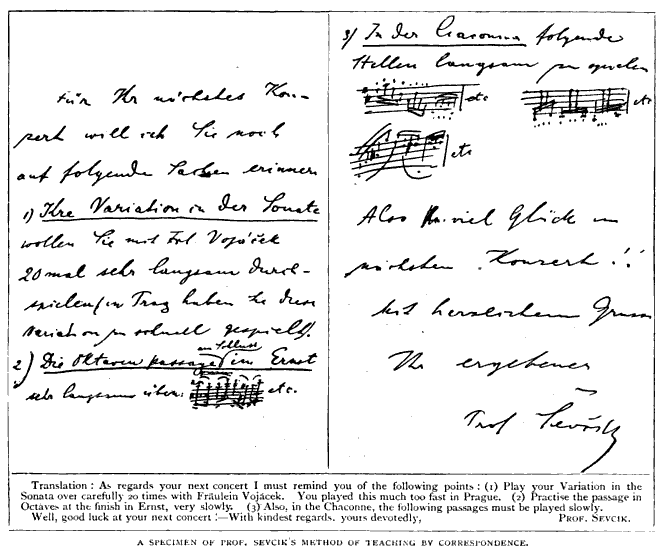 Für Ihr nächstes Kon-
zert will ich Sie noch
auf folgende Sachen erinnern
1) Ihre Variation in der Sonate
wollen Sie mit Frl Vojáček
20 mal sehr langsam durch-
spielen (in Prag haben Sie diese
Variation zu schnell gespielt).
am Schluss
2) Die Oktavenpassage in Ernst
sehr langsam üben: etc.
3) In der Ciaconna folgende
Stellen langsam zu spielen
etc etc
etc
Also viel Glück im
nächsten Konzert!!
Mit herzlichem Gruss
Ihr ergebener
Prof Ševčík
Translation: As regards your next concert I must remind you of the following points: (1) Play your Variation in the
Sonata over carefully 20 times with Fräulein Vojácek. You played this much too fast in Prague. (2) Practise the passage in
Octaves at the finish in Ernst, very slowly. (3) Also, in the Chaconne, the following passages must be played slowly.
Well, good luck at your next concert!—With kindest regards, yours devotedly, PROF. SEVCIK.
A SPECIMEN OF PROF. SEVCIK'S METHOD OF TEACHING BY CORRESPONDENCE.